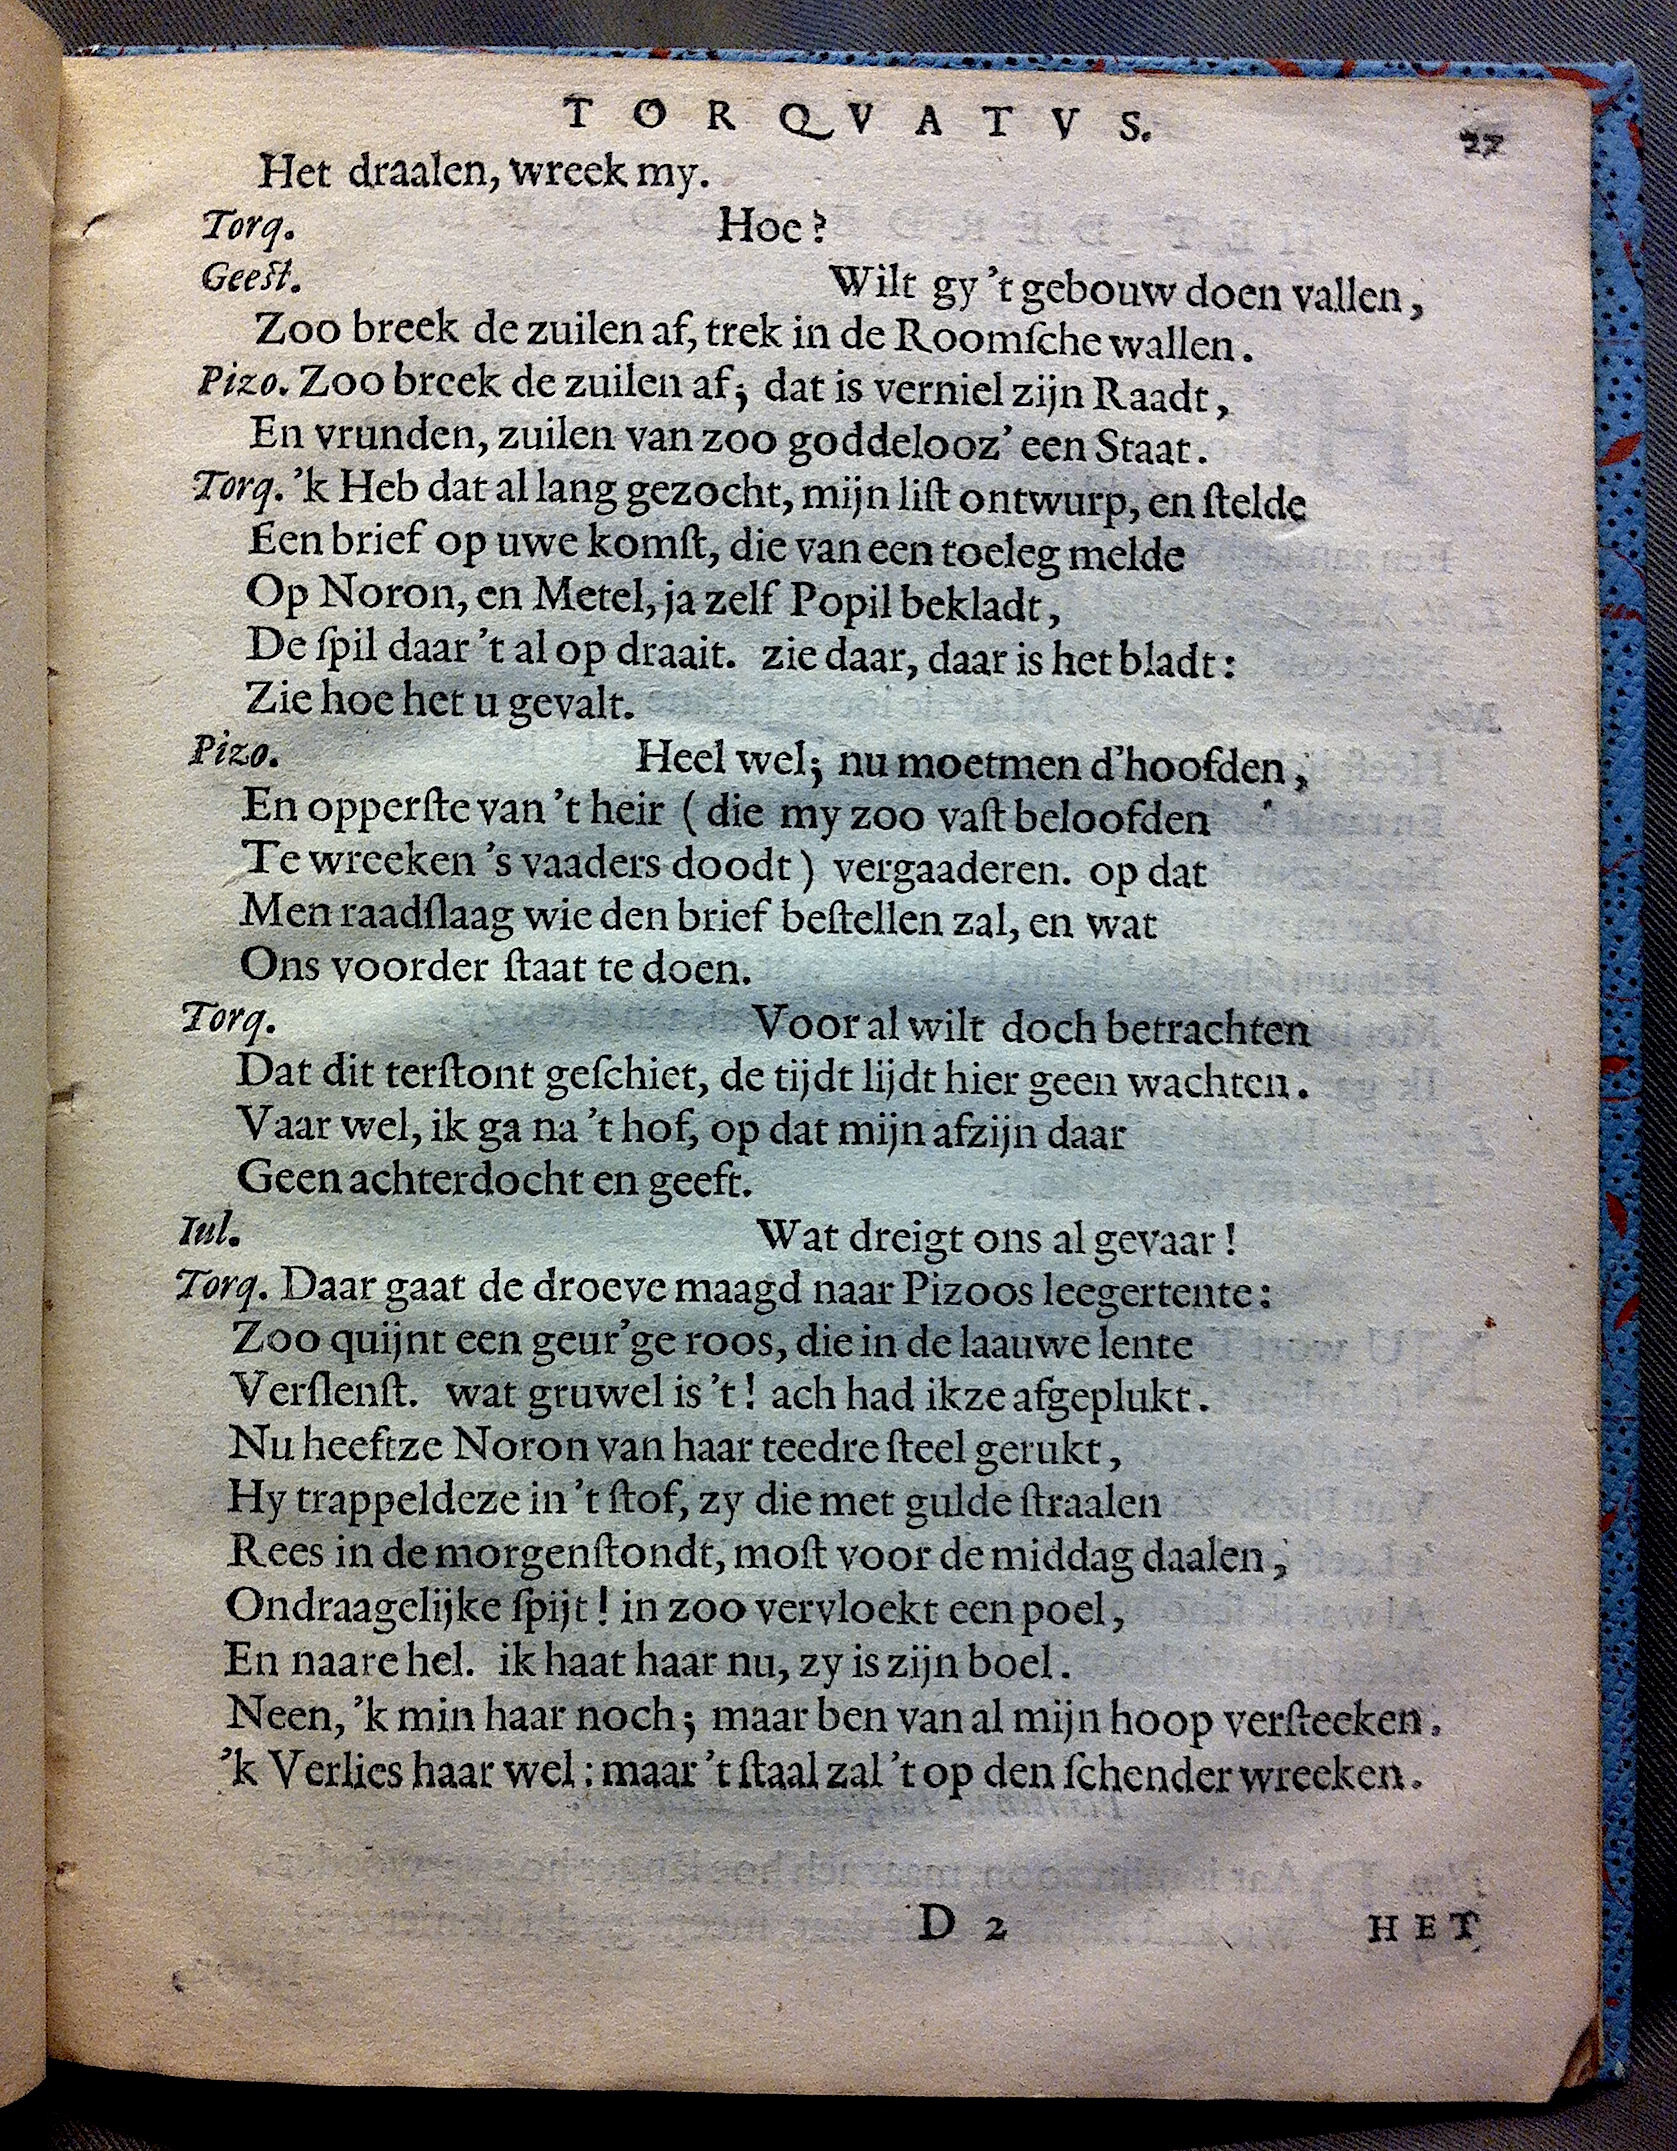 TORQVATVS. 27
Het draalen, wreek my.
Torq. Hoe?
Geeſt. Wilt gy 't gebouw doen vallen,
Zoo breek de zuilen af, trek in de Roomſche wallen.
Pizo. Zoo breek de zuilen af; dat is verniel zijn Raadt,
En vrunden, zuilen van zoo goddelooz' een Staat.
Torq. 'k Heb dat al lang gezocht, mijn liſt ontwurp, en ſtelde
Een brief op uwe komſt, die van een toeleg melde
Op Noron, en Metel, ja zelf Popil bekladt,
De ſpil daar 't al op draait. zie daar, daar is het bladt:
Zie hoe het u gevalt.
Pizo. Heel wel; nu moetmen d'hoofden,
En opperſte van 't heir (die my zoo vaſt beloofden
Te wreeken 's vaaders doodt) vergaaderen. op dat
Men raadſlaag wie den brief beſtellen zal, en wat
Ons voorder ſtaat te doen.
Torq. Voor al wilt doch betrachten
Dat dit terſtont geſchiet, de tijdt lijdt hier geen wachten.
Vaar wel, ik ga na 't hof, op dat mijn afzijn daar
Geen achterdocht en geeft.
Iul. Wat dreigt ons al gevaar!
Torq. Daar gaat de droeve maagd naar Pizoos leegertente:
Zoo quijnt een geur'ge roos, die in de laauwe lente
Verſlenſt. wat gruwel is 't! ach had ikze afgeplukt.
Nu heeftze Noron van haar teedre ſteel gerukt,
Hy trappeldeze in 't ſtof, zy die met gulde ſtraalen
Rees in de morgenſtondt, moſt voor de middag daalen,
Ondraagelijke ſpijt! in zoo vervloekt een poel,
En naare hel. ik haat haar nu, zy is zijn boel.
Neen, 'k min haar noch; maar ben van al mijn hoop verſteeken.
'k Verlies haar wel: maar 't ſtaal zal 't op den ſchender wreeken.
D 2 HET